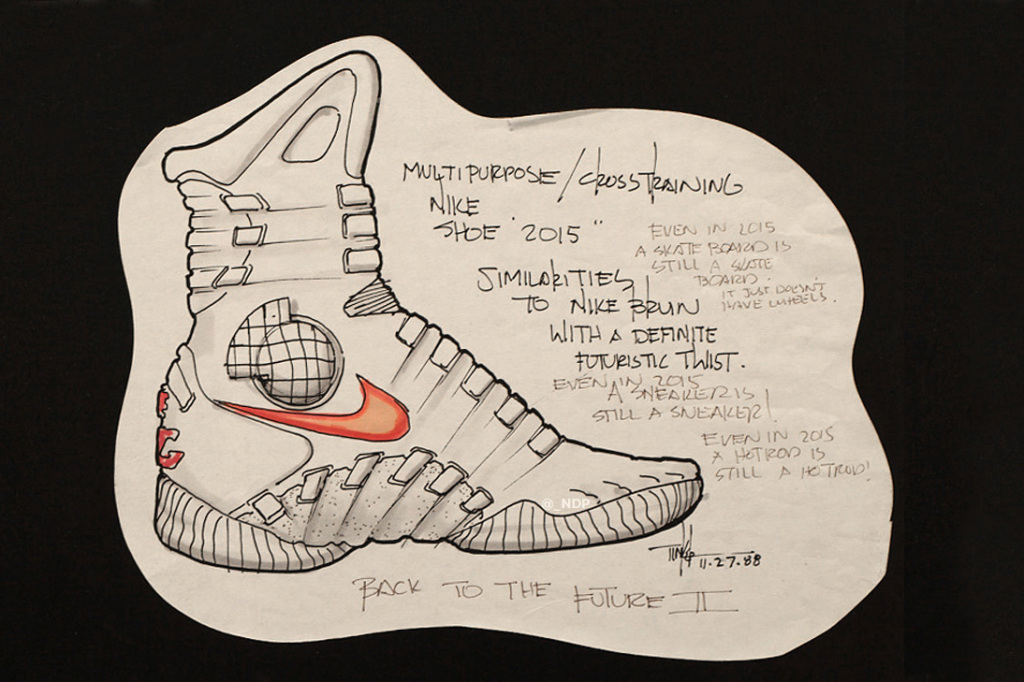 MULTIPURPOSE / CROSSTRAINING
NIKE
SHOE "2015"
EVEN IN 2015
A SKATE BOARD IS
STILL A SKATE
BOARD.
IT JUST DOESN'T
HAVE WHEELS.
SIMILARITIES
TO NIKE
WITH A DEFINITE
FUTURISTIC TWIST.
EVEN IN 2015
A SNEAKER IS
STILL A SNEAKER!
EVEN IN 2015
A HOTROD IS
STILL A HOTROD!
@_NDP
11.27.88
BACK TO THE FUTURE II